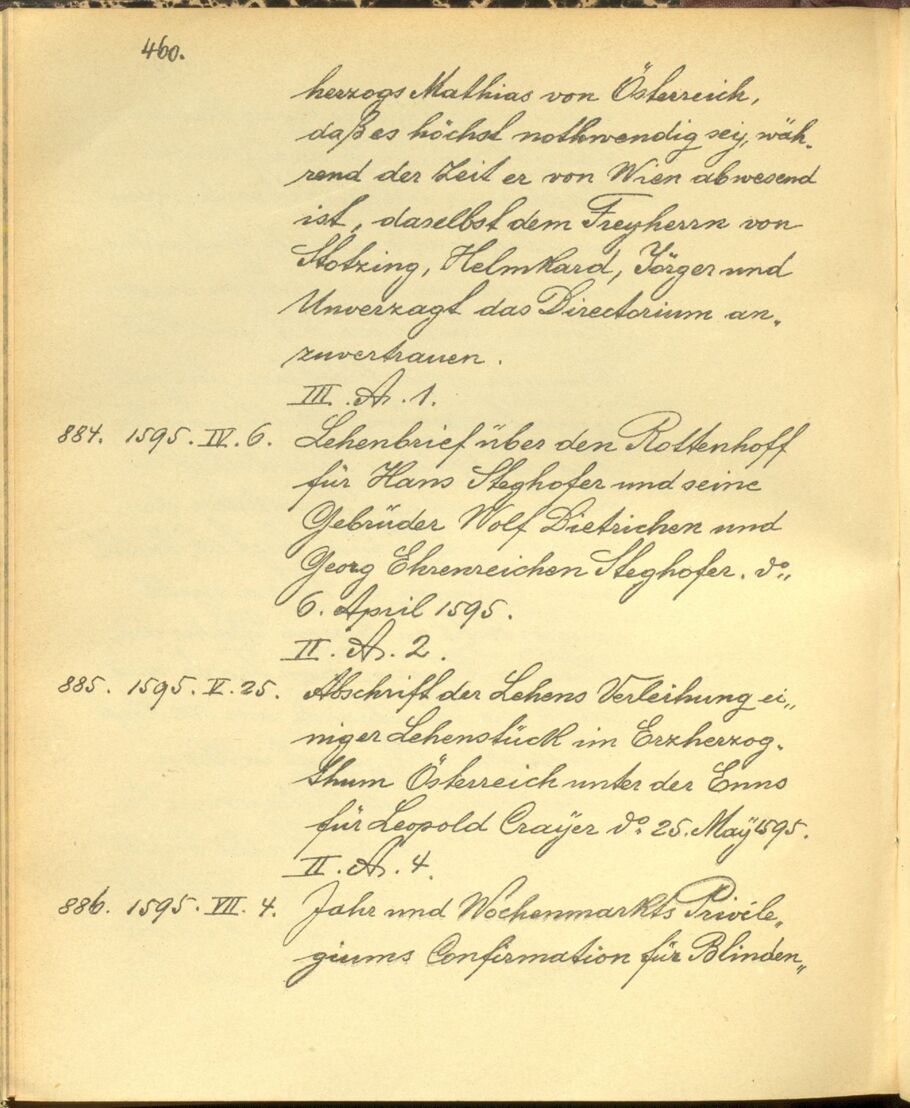 460.
herzogs Mathias von Österreich,
daß es höchst nothwendig sei, wäh-
rend der Zeit er von Wien abwesend
ist, daselbst dem Freyherrn von
Stotzing, Helmhard, Jörger und
Unverzagt das Directorium an-
zuvertrauen.
III. A. 1.
884. 1595. IV. 6. Lehenbrief über den Rottenhoff
für Hans Steghofer und seine
Gebrüder Wolf Dietrichen und
Georg Ehrenreichen Steghofer. do„
6. April 1595.
II. A. 2.
885. 1595. V. 25. Abschrift der Lehens Verleihung ei„
niger Lehenstück im Erzherzog-
thum Österreich unter der Enns
für Leopold Crayer do. 25. Maÿ 1595.
II. A. 4.
886. 1595. VII. 4. Jahr und Wochenmarkts Privile„
giums Confirmation für Blinden„